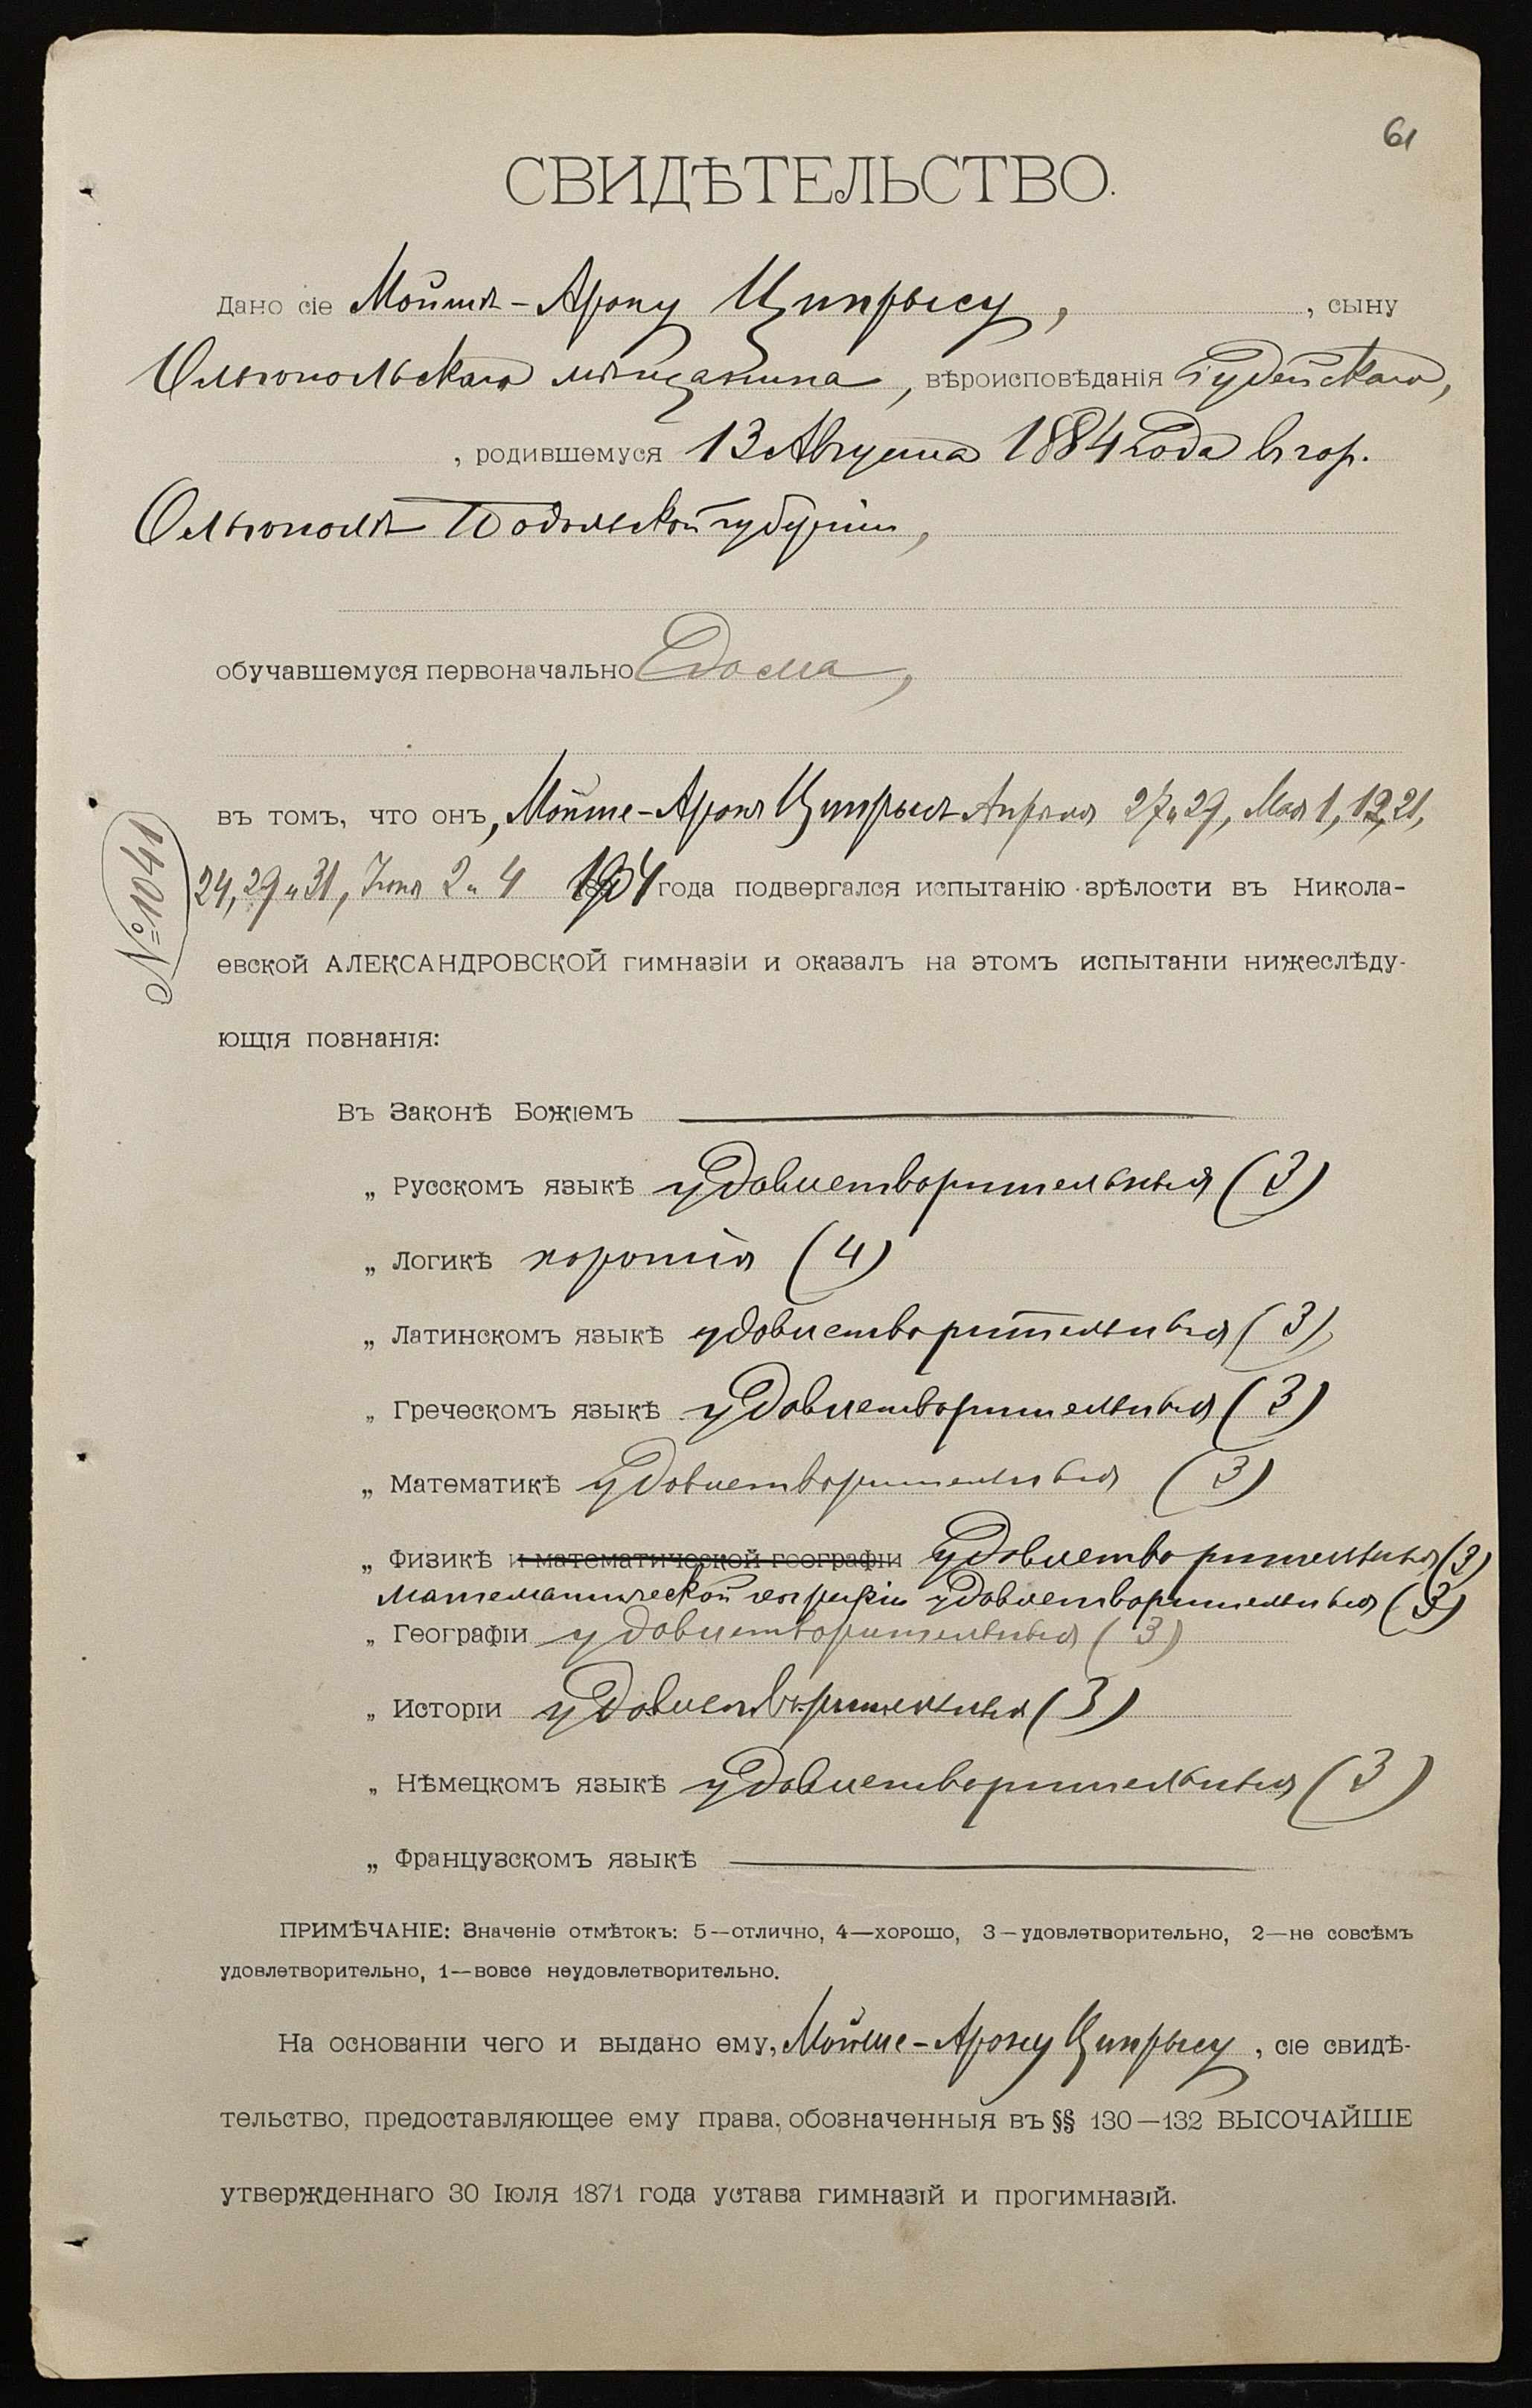 61
СВИДѢТЕЛЬСТВО.
Дано сіе Мойше-Арону Ципрысу, , сыну
Ольгопольскаго мѣщанина, вѣроисповѣданія Іудейскаго,
, родившемуся 13 Августа 1884 года въ гор.
Ольгополѣ Подольской губерніи,
обучавшемуся первоначально дома,
въ томъ, что онъ, Мойше-Аронъ Ципрысъ Апрѣля 27 и 29, Мая 1, 19, 21,
24, 29 и 31, Іюня 2 и 4 1904 года подвергался испытанію зрѣлости въ Никола-
№ 1041
евской АЛЕКСАНДРОВСКОЙ гимназіи и оказалъ на этомъ испытаніи нижеслѣду-
ющія познанія:
Въ Законѣ Божіемъ
„ Русскомъ языкѣ удовлетворительныя (3)
„ Логикѣ хорошія (4)
„ Латинскомъ языкѣ удовлетворительныя (3)
„ Греческомъ языкѣ удовлетворительныя (3)
„ Математикѣ удовлетворительныя (3)
„ Физикѣ и математической географіи удовлетворительныя (3)
Математической географіи удовлетворительныя (3)
„ Географіи удовлетворительныя (3)
„ Исторіи удовлетворительныя (3)
„ Нѣмецкомъ языкѣ удовлетворительныя (3)
„ Французскомъ языкѣ
ПРИМѢЧАНІЕ: Значеніе отмѣтокъ: 5—отлично, 4—хорошо, 3—удовлетворительно, 2—не совсѣмъ
удовлетворительно, 1—вовсе неудовлетворительно.
На основаніи чего и выдано ему, Мойше-Арону Ципрысу, сіе свидѣ-
тельство, предоставляющее ему права, обозначенныя въ §§ 130—132 ВЫСОЧАЙШЕ
утвержденнаго 30 Іюля 1871 года устава гимназій и прогимназій.